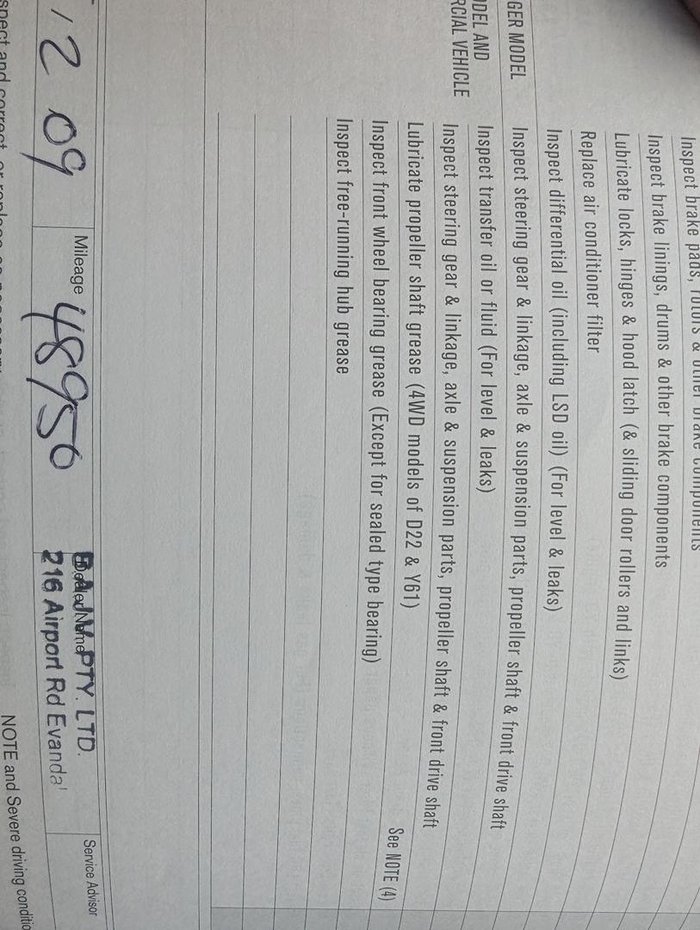 Inspect brake pads, & other brake components
Inspect brake linings, drums & other brake components
Lubricate locks, hinges & hood latch (& sliding door rollers and links)
Replace air conditioner filter
Inspect differential oil (including LSD oil) (For level & leaks)
GER MODEL
Inspect steering gear & linkage, axle & suspension parts, propeller shaft & front drive shaft
DEL AND
RCIAL VEHICLE
Inspect transfer oil or fluid (For level & leaks)
Inspect steering gear & linkage, axle & suspension parts, propeller shaft & front drive shaft
Lubricate propeller shaft grease (4WD models of D22 & Y61)
Inspect front wheel bearing grease (Except for sealed type bearing) See NOTE (4)
Inspect free-running hub grease
12 09 Mileage 48950 Service Advisor
PTY. LTD.
216 Airport Rd Evandal
NOTE and Severe driving conditio